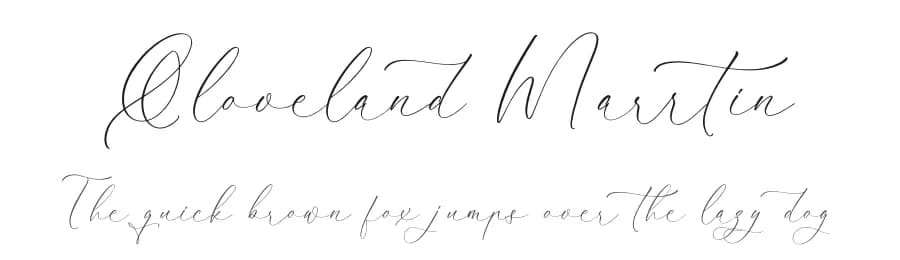 Cloveland Marrtin
The quick brown fox jumps over the lazy dog